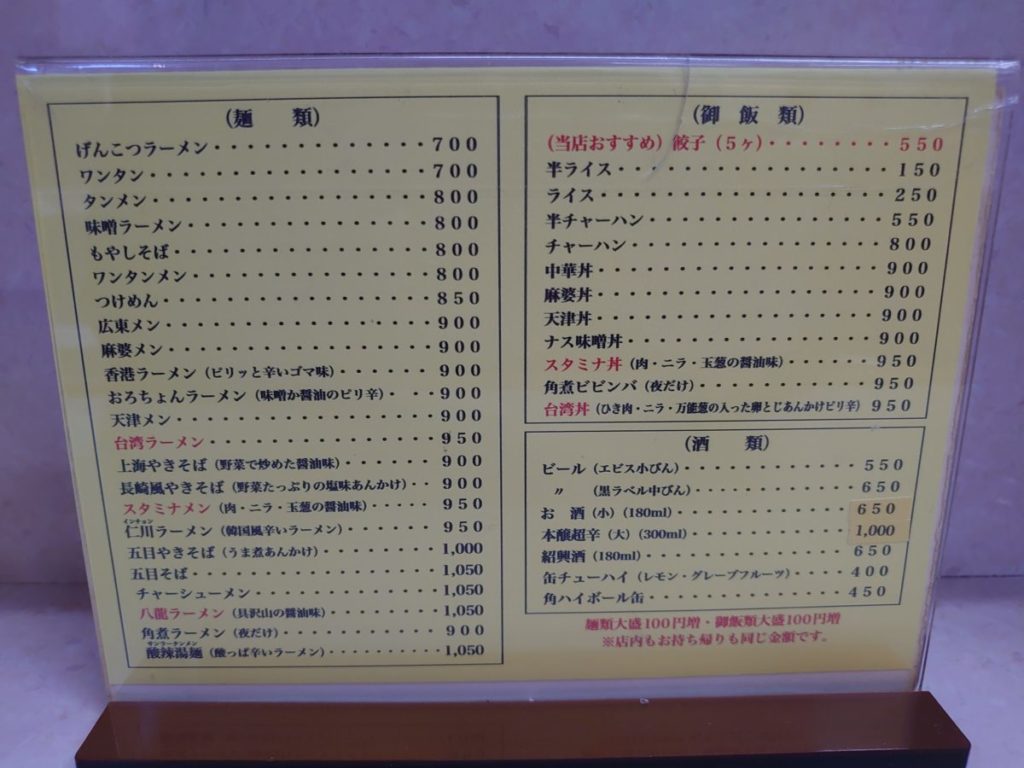 (麺 類)
げんこつラーメン・・・・・・・・・・・・・700
ワンタン・・・・・・・・・・・・・・・・・700
タンメン・・・・・・・・・・・・・・・・・800
味噌ラーメン・・・・・・・・・・・・・・・800
もやしそば・・・・・・・・・・・・・・・・800
ワンタンメン・・・・・・・・・・・・・・・800
つけめん・・・・・・・・・・・・・・・・・850
広東メン・・・・・・・・・・・・・・・・・900
麻婆メン・・・・・・・・・・・・・・・・・900
香港ラーメン(ピリッと辛いゴマ味)・・・・・・900
おろちょんラーメン(味噌か醤油のピリ辛)・・・900
天津メン・・・・・・・・・・・・・・・・・900
台湾ラーメン・・・・・・・・・・・・・・・950
上海やきそば(野菜で炒めた醤油味)・・・・・・900
長崎風やきそば(野菜たっぷりの塩味あんかけ)・・900
スタミナメン(肉・ニラ・玉葱の醤油味)・・・・・950
インチョン
仁川ラーメン(韓国風辛いラーメン)・・・・・・950
五目やきそば(うま煮あんかけ)・・・・・・・・1,000
五目そば・・・・・・・・・・・・・・・・・1,050
チャーシューメン・・・・・・・・・・・・・1,050
八龍ラーメン(具沢山の醤油味)・・・・・・・・1,050
角煮ラーメン(夜だけ)・・・・・・・・・・・・900
サンラータンメン
酸辣湯麺(酸っぱ辛いラーメン)・・・・・・・・1,050
(御 飯 類)
(当店おすすめ)餃子(5ヶ)・・・・・・・・・550
半ライス・・・・・・・・・・・・・・・・・150
ライス・・・・・・・・・・・・・・・・・・250
半チャーハン・・・・・・・・・・・・・・・550
チャーハン・・・・・・・・・・・・・・・・800
中華丼・・・・・・・・・・・・・・・・・・900
麻婆丼・・・・・・・・・・・・・・・・・・900
天津丼・・・・・・・・・・・・・・・・・・900
ナス味噌丼・・・・・・・・・・・・・・・・900
スタミナ丼(肉・ニラ・玉葱の醤油味)・・・・・・950
角煮ビビンバ(夜だけ)・・・・・・・・・・・・950
台湾丼(ひき肉・ニラ・万能葱の入った卵とじあんかけピリ辛)950
(酒 類)
ビール(エビス小びん)・・・・・・・・・・・・550
〃 (黒ラベル中びん)・・・・・・・・・・・・650
お 酒(小)(180ml)・・・・・・・・・・・・650
本醸超辛(大)(300ml)・・・・・・・・・・・1,000
紹興酒(180ml)・・・・・・・・・・・・・・650
缶チューハイ(レモン・グレープフルーツ)・・・・400
角ハイボール缶・・・・・・・・・・・・・・450
麺類大盛100円増・御飯類大盛100円増
※店内もお持ち帰りも同じ金額です。